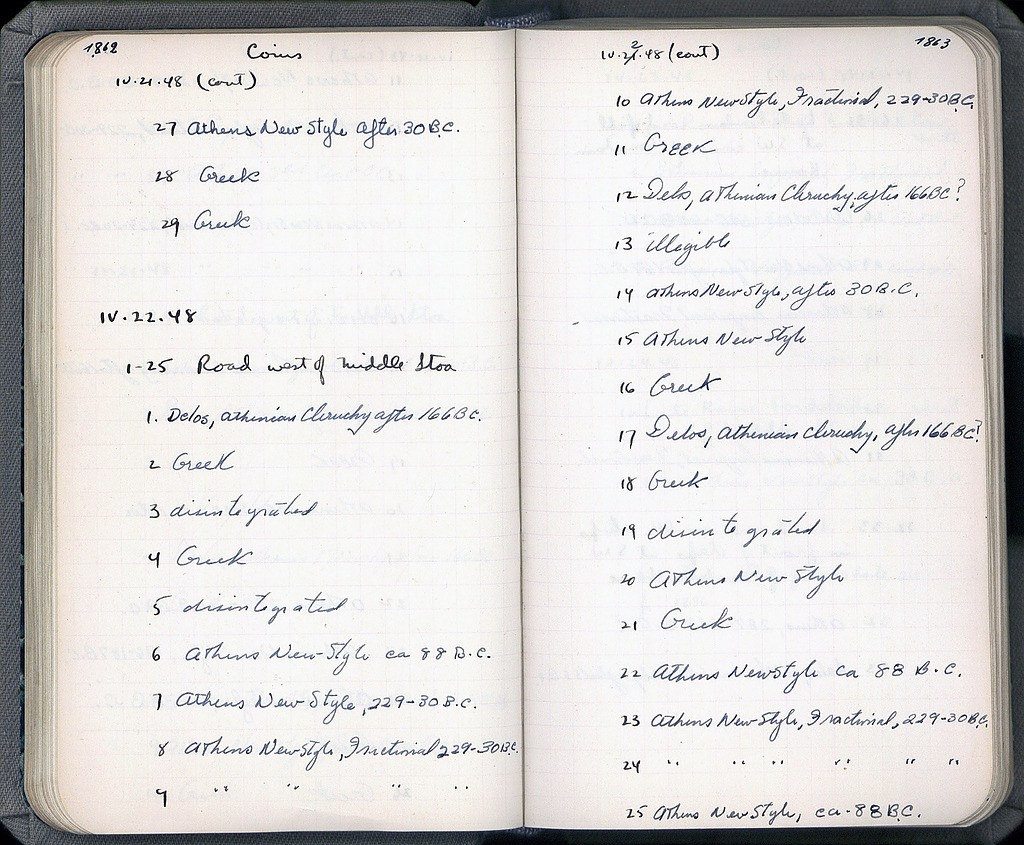 1862
Coins
IV.21.48 (cont)
27 Athens New Style after 30 B.C.
28 Greek
29 Greek
IV.22.48
1-25 Road west of Middle Stoa
1. Delos, Athenian Cleruchy after 166 B.C.
2 Greek
3 disintegrated
4 Greek
5 disintegrated
6 Athens New Style ca 88 B.C.
7 Athens New Style, 229-30 B.C.
8 Athens New Style, Fractional 229-30 B.C.
9 " " " "
1863
IV.22.48 (cont)
10 Athens New Style, Fractional, 229-30 B.C.
11 Greek
12 Delos, Athenian Cleruchy, after 166 BC?
13 illegible
14 Athens New Style, after 30 B.C.
15 Athens New Style
16 Greek
17 Delos, Athenian Cleruchy, after 166 BC?
18 Greek
19 disintegrated
20 Athens New Style
21 Greek
22 Athens New Style ca 88 B.C.
23 Athens New Style, Fractional, 229-30 B.C.
24 " " " " " "
25 Athens New Style, ca. 88 B.C.